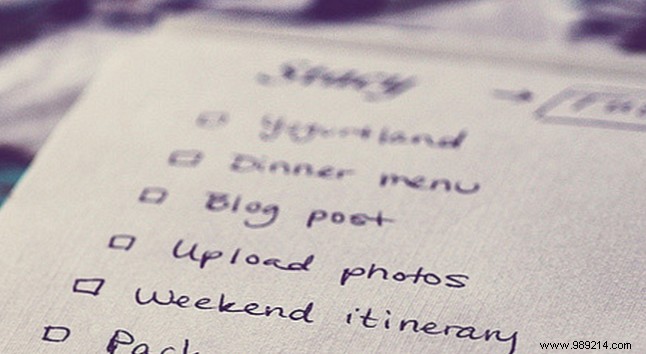 Yogurtland
Dinner menu
Blog post
Upload photos
Weekend itinerary
Pack
www.989214.com